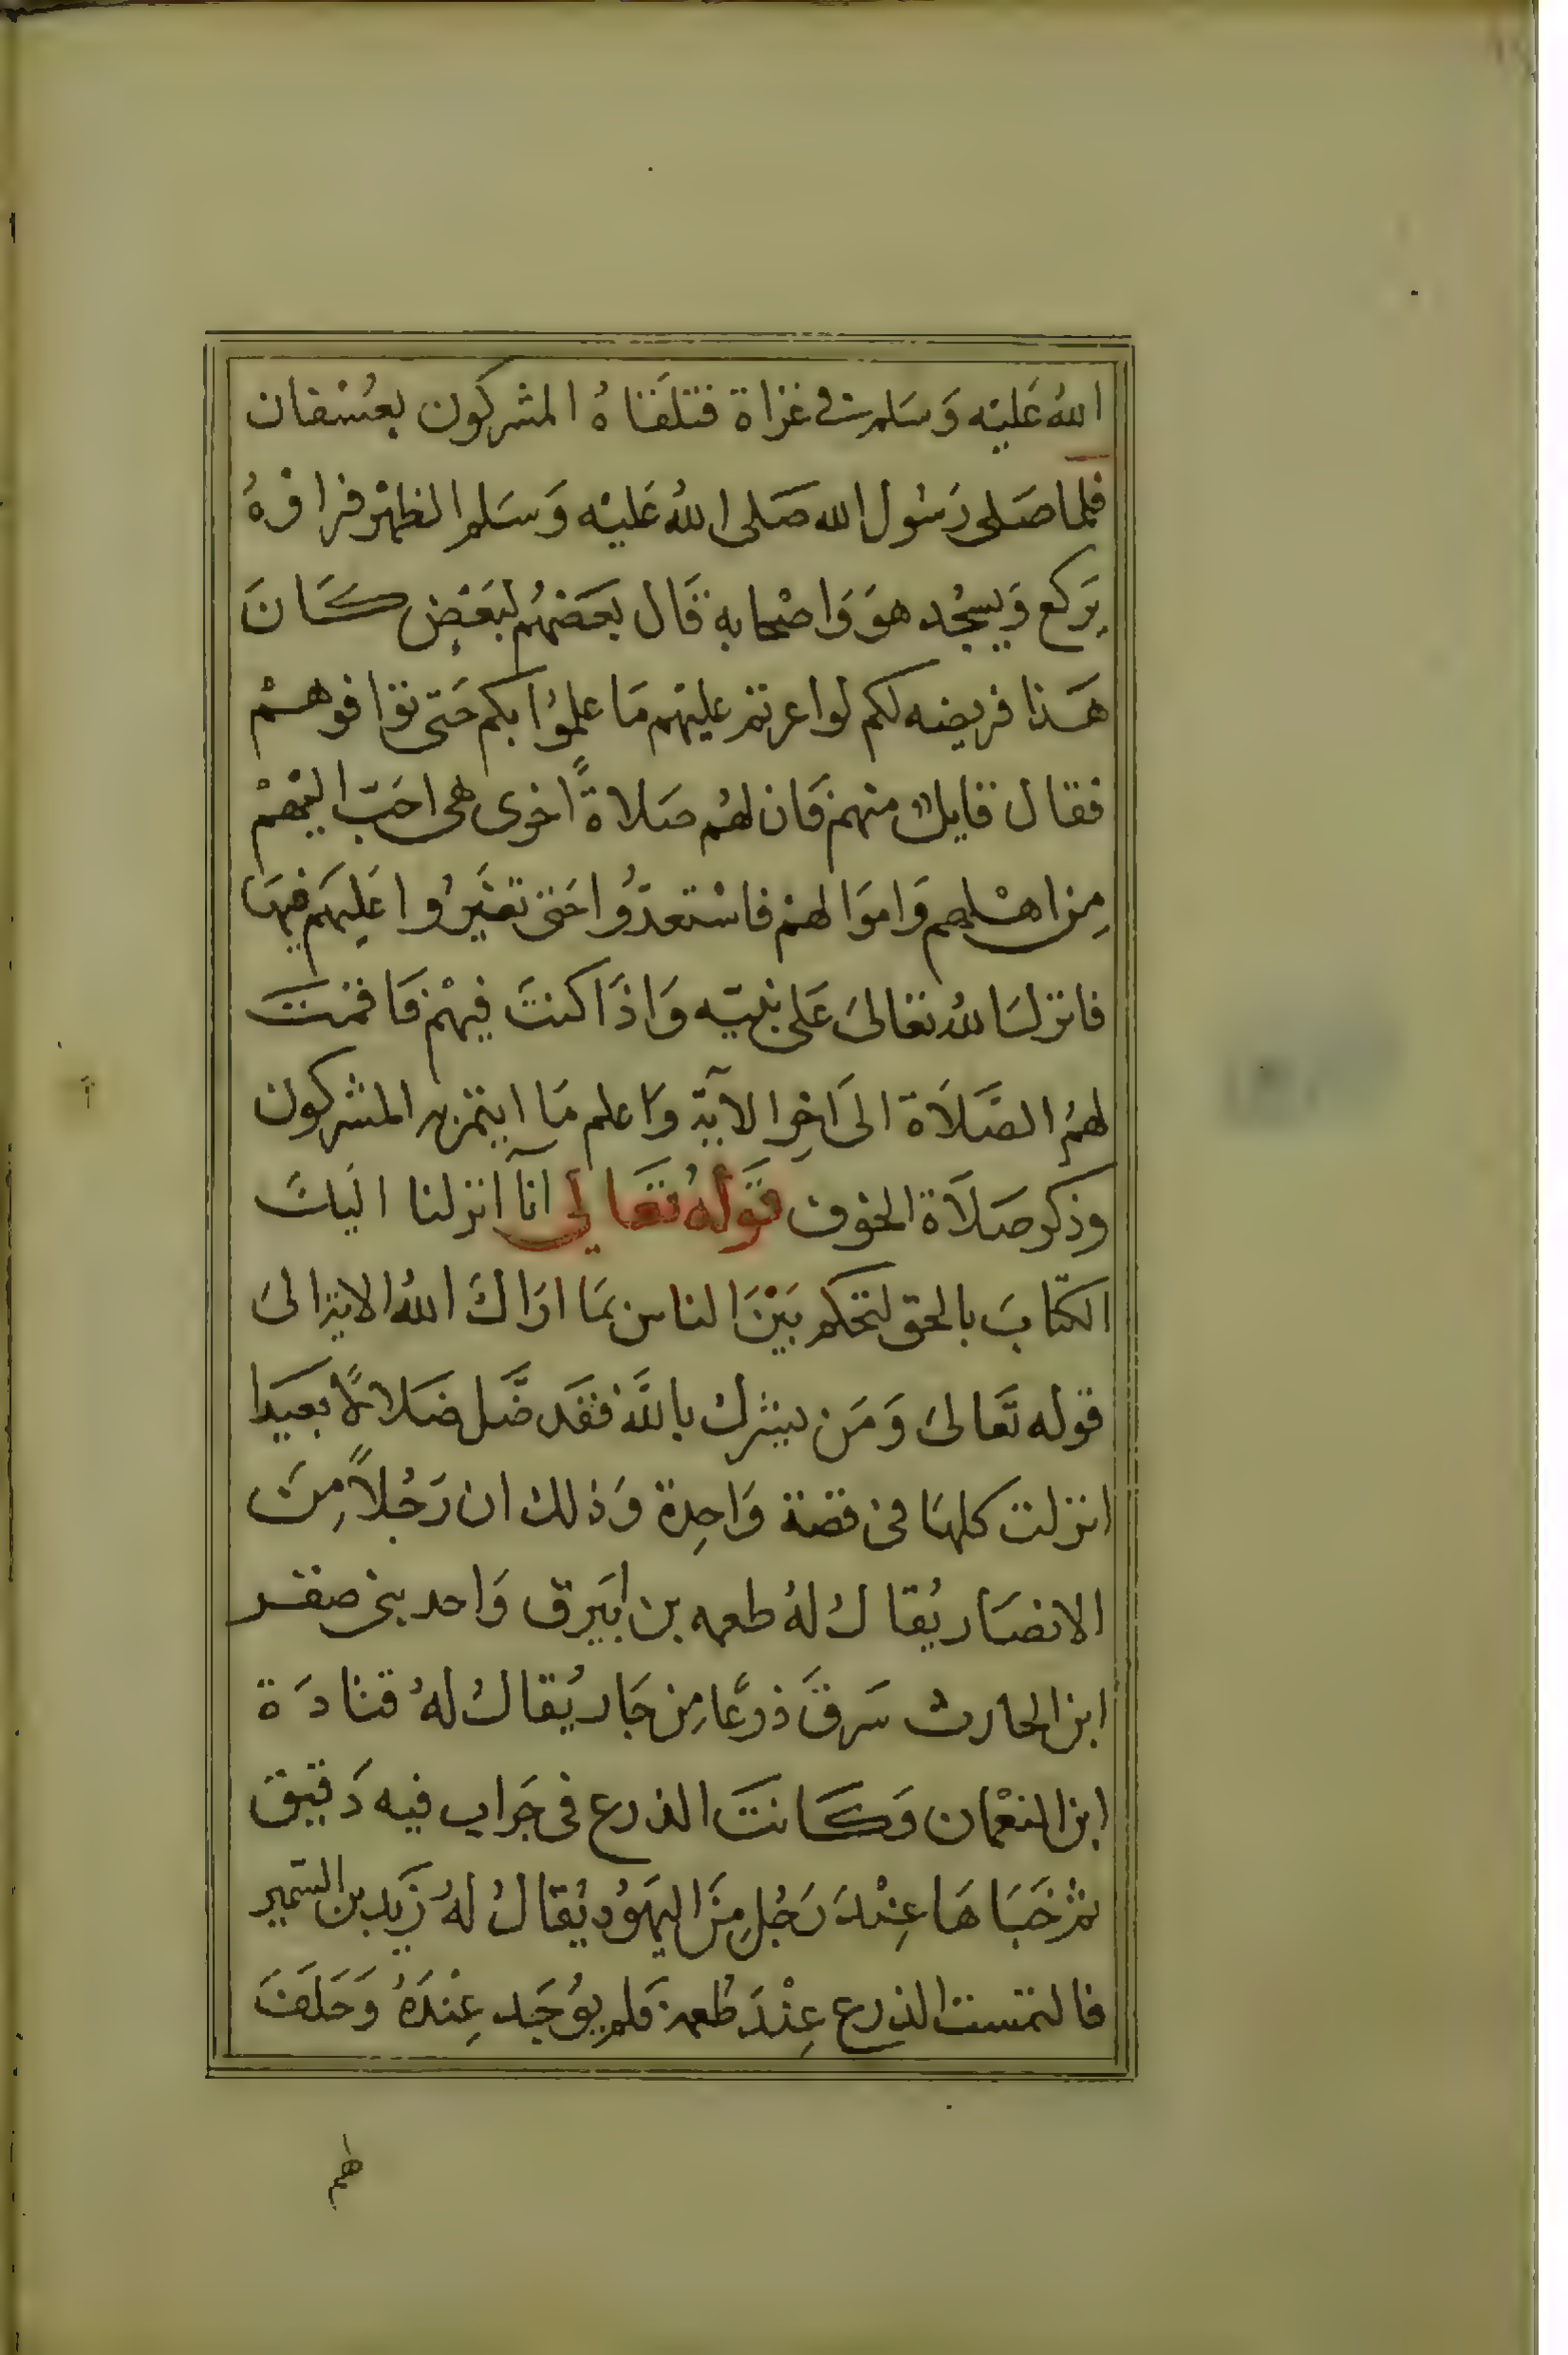 الله عَليْه وَسَلم في غزاة فتلقاهُ المشركون بعُسْفان
فلما صَلى رَسُول الله صَلى اللهُ عَليْه وَسَلم الظهْر فراوْهُ
يَركع وَيسجُد هوَ وَاصْحابه قَال بعَضهُم لبَعْضٍ كَانَ
هَذا فريضه لكم لو اغرتم عليْهم مَا علموُا بكم حَتى تواقوهمْ
فقال قايلٌ منهم فَان لهُم صَلاةً اخرى هى احَبّ اليْهمْ
مِن اهْليهم وَاموَالهم فاسْتعدّوُا حَتى تغيَرُوا عَليهَم فيهَا
فانزل اللهُ تعَالىَ عَلى نبيّه وَاذَا كنتَ فيهْم فَاقمْتَ
لهُم الصَّلاَة الىَ اخِر الآية واعلم مَا ايتمر به المشركون
وذكر صَلاَة الخوف قَوْلهُ تعَالي انآ انزلنا اليَك
الكتّابَ بالحق لتحَكم بَيْنَ الناس بمَا ارَاكَ اللهُ الاية الىَ
قوله تَعالىَ وَمَن يشرك باللَّه فقَد ضَّل ضَلالاً بعيَدا
انزلت كلهَا فى قصة وَاحِدة وَذلك ان رَجُلاً مِنَ
الانصَار يُقالُ لهُ طعمه بن ابَيرق وَاحد بنى صفر
ابن الحارث سَرقَ درعًا مِن جَار يُقالُ لهُ قتادَة
ابن النعْمان وَكَانتَ الدرع فى جَراب فيه دَقيق
ثم خَبَاهَا عِنْدَ رَجُلِ مِنَ اليهَوُد يُقالُ لهُ زَيد بن السَّمير
فالتمست الدرع عِنْدَ طُعمة فَلم يوُجَد عِنْدَهُ وَحَلَفَ
هم